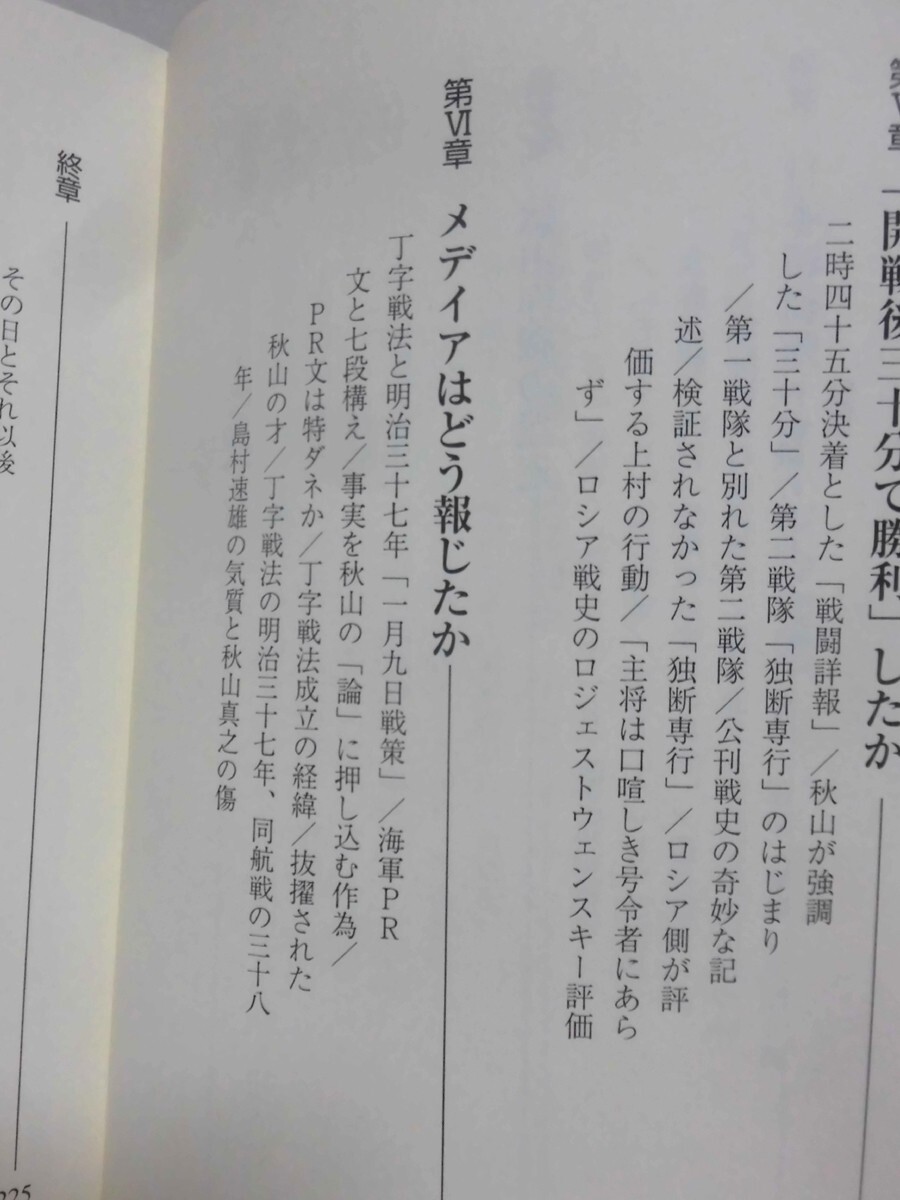 第Ⅴ章 「開戦後三十分で勝利」したか
二時四十五分決着とした「戦闘詳報」／秋山が強調
した「三十分」／第二戦隊「独断専行」のはじまり
／第一戦隊と別れた第二戦隊／公刊戦史の奇妙な記
述／検証されなかった「独断専行」／ロシア側が評
価する上村の行動／「主将は口喧しき号令者にあら
ず」／ロシア戦史のロジェストウェンスキー評価
第Ⅵ章 メデイアはどう報じたか
丁字戦法と明治三十七年「一月九日戦策」／海軍ＰＲ
文と七段構え／事実を秋山の「論」に押し込む作為／
ＰＲ文は特ダネか／丁字戦法成立の経緯／抜擢された
秋山の才／丁字戦法の明治三十七年、同航戦の三十八
年／島村速雄の気質と秋山真之の傷
終章
その日とそれ以後
225